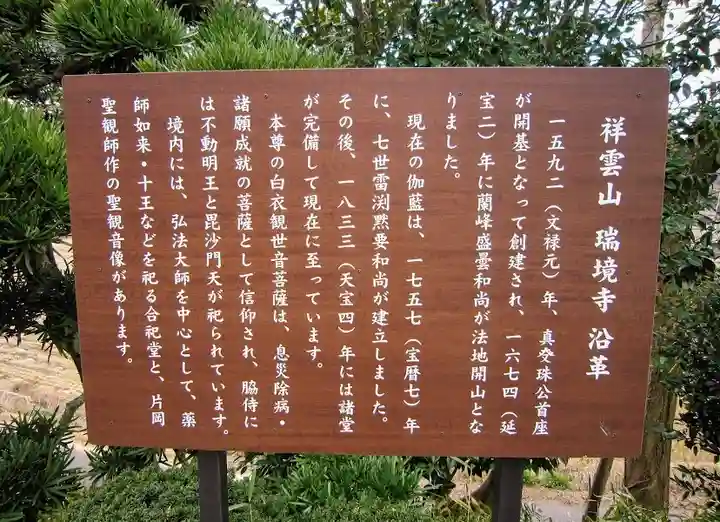 祥雲山 瑞境寺 沿革
一五九二（文禄元）年、真叟珠公首座
が開基となって創建され、一六七四（延
宝二）年に蘭峰盛曇和尚が法地開山とな
りました。
現在の伽藍は、一七五七（宝暦七）年
に、七世雷渕黙要和尚が建立しました。
その後、一八三三（天宝四）年には諸堂
が完備して現在に至っています。
本尊の白衣観世音菩薩は、息災除病・
諸願成就の菩薩として信仰され、脇侍に
は不動明王と毘沙門天が祀られています。
境内には、弘法大師を中心として、薬
師如来・十王などを祀る合祀堂と、片岡
聖観師作の聖観音像があります。